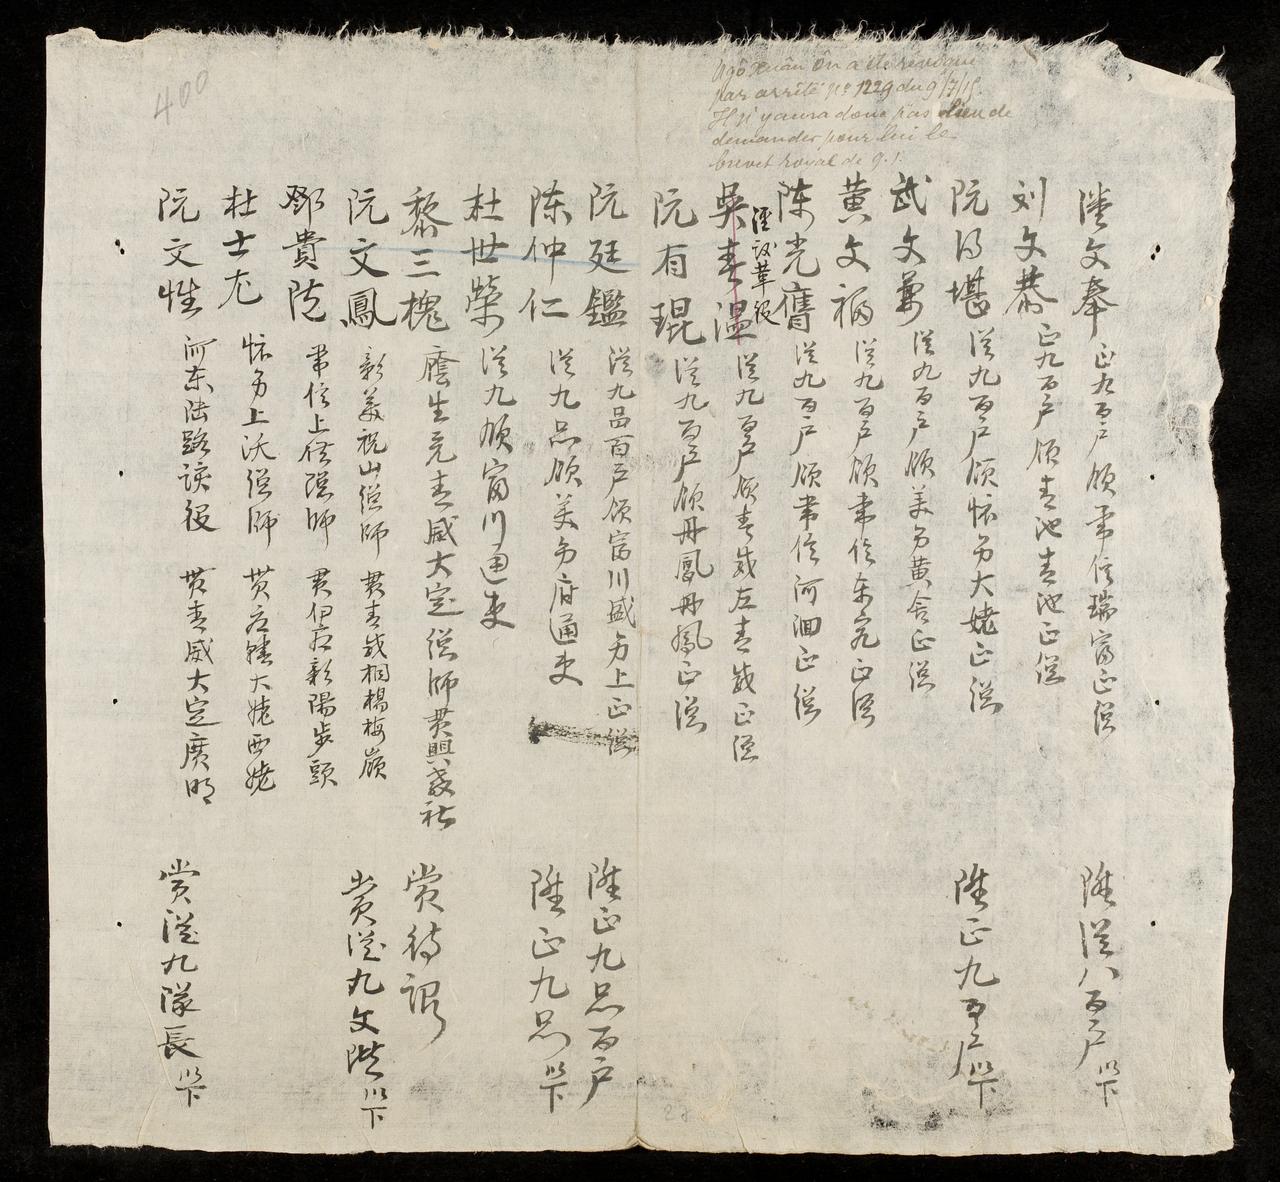 400
Ngô Xuân Ôn a été révoqué
par arrêté Nº 1229 du 9/7/15
Il n'y aura donc pas lieu de
demander pour lui le
brevet royal de 9.1.
潘文奉 正九百户領常信瑞富正總
陞從八百户以下
刘文恭 正九百户領青池青池正總
阮得堪 從九百户領怀安大姥正總
陞正九百户以下
武文 從九百户領美安黄舍正總
黄文福 從九百户領常信東 正總
陈光 從九百户領常信河洄正總
吳春温 從九百户領青威左青威正總
経 革役
阮有琨 從九百户領丹鳳丹鳳正總
阮廷鑑 從九品百户領富川盛 上正總
陞正九品百户
陈仲仁 從九品領美 府通吏
陞正九品以下
杜世榮 從九領富川通吏
黎三槐 廕生充青威大定總師貫興教社
賞待詔
阮文鳳 彰美祝山總師 貫青威桐楊梅嶺
賞從九文階以下
鄧貴 常信上 總師 貫伊 彰陽步頭
杜士 怀安上沃總師 貫 大姥西姥
阮文性 河东陆路 役 貫青威大定廣明
賞從九隊長以下